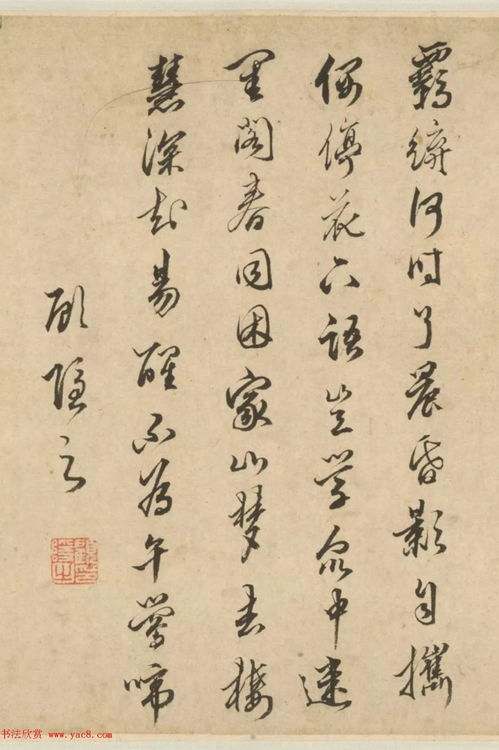 羈何時了晨昏影自攜
停花下語豈學衆中迷
閣春同困家山夢去棲
慧深却易醒不為午鶯啼
顧之
书法欣赏 www.yac8.com